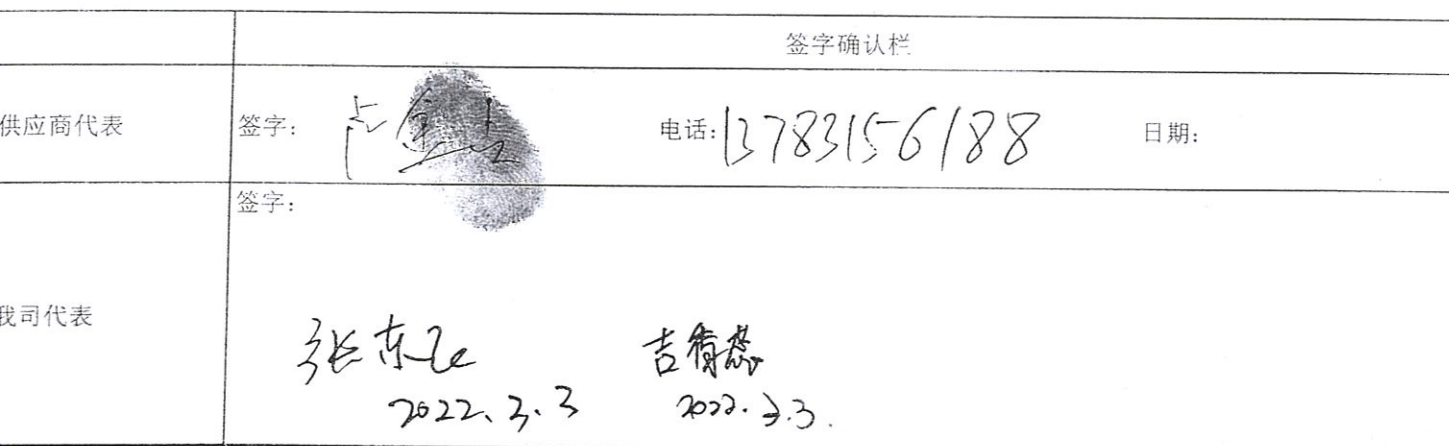 签字确认栏
供应商代表 签字: 电话:13783156188 日期:
签字:
我司代表
张东飞 吉倩蕊
2022.3.3 2022.3.3.